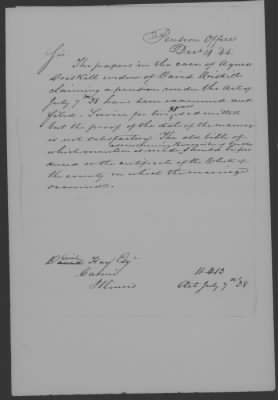 Pension Office
Decr 19 '44.
Sir,
The papers in the case of Agness
Driskell widow of David Driskell
claiming a pension under the Act of
July 7th '38 have been examined and
filed. Service for is admitted
but the proof of the date of the marriage
is not satisfactory. The old bible of
which mention is made, should be pro
duced or the certificate of the Clerk of
the county in which the marriage
Daniel Hay Esqr
Carmi
Illinois
11.413
Act July 7th '38